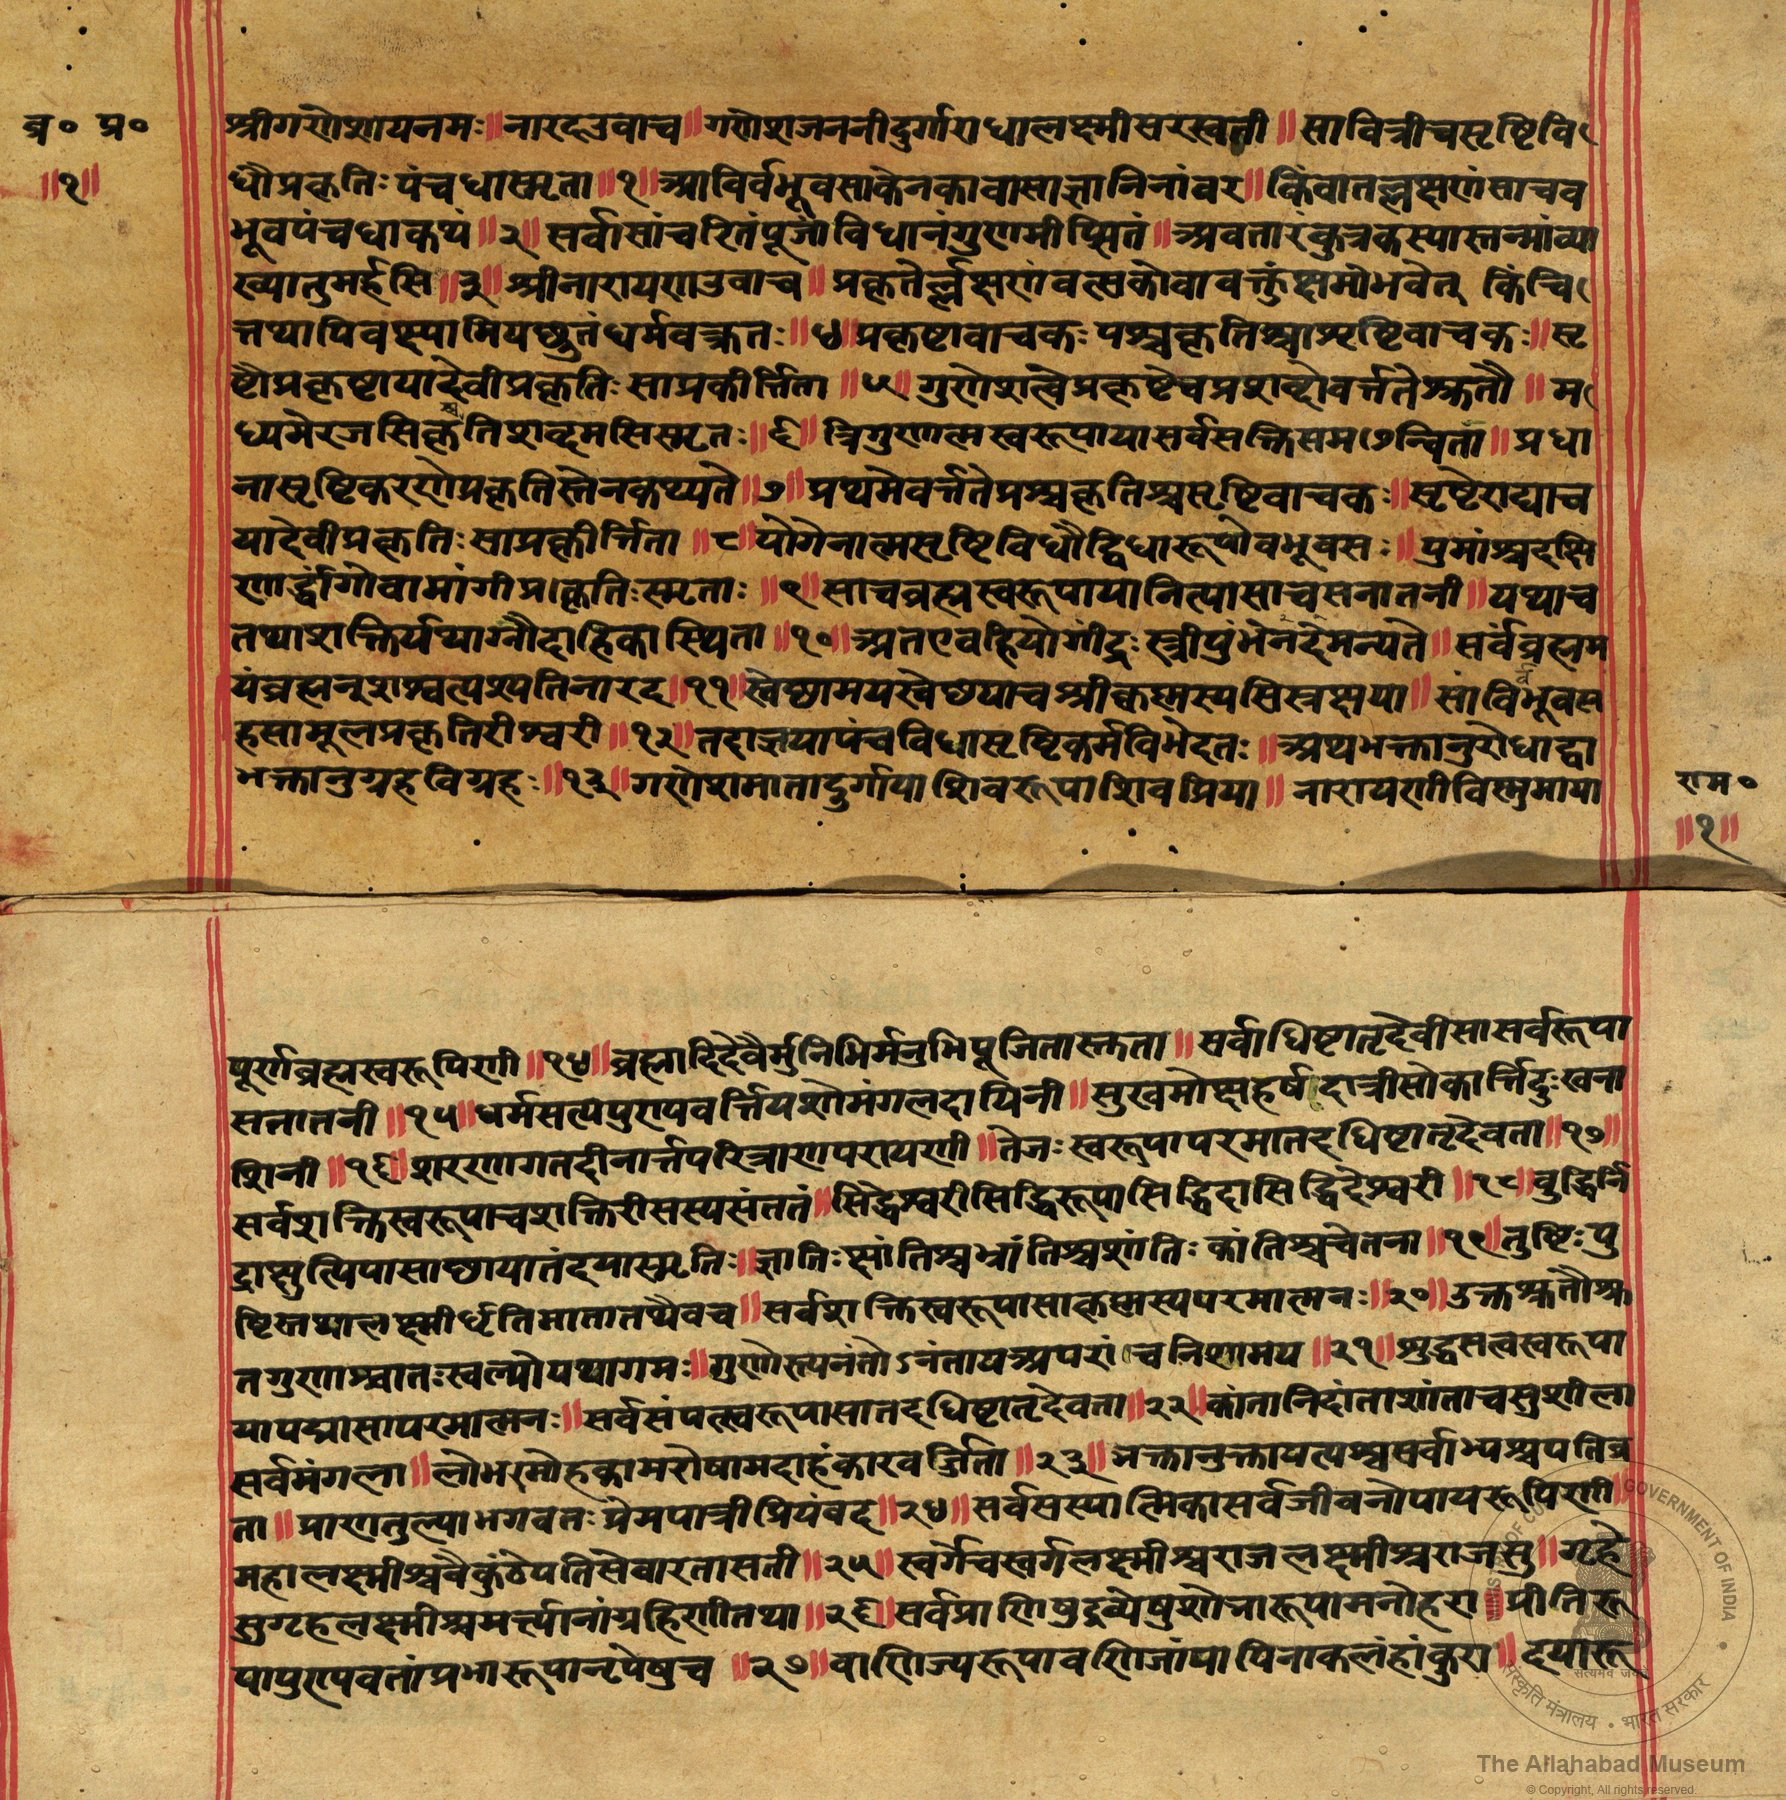 ब्र० प्र०
॥१॥
श्रीगणेशायनमः॥नारदउवाच॥गणेशजननीदुर्गाराधालक्ष्मीसरस्वती॥सावित्रीचसृष्टिवि
धौप्रकृतिःपंचधास्मृता॥१॥आविर्वभूवसाकेनकावासाज्ञानिनांवर॥किंवातल्लक्षणंसाचव
भूवपंचधाकथं॥२॥सर्वासांचरितंपूजांविधानंगुणमीप्सितं॥अवतारंकुत्रकस्यास्तन्मांव्या
ख्यातुमर्हसि॥३॥श्रीनारायणउवाच॥प्रकृतेर्ल्लक्षणंवत्सकोवावक्तुंक्षमोभवेत् किंचि
त्तथापिवक्ष्यामियछ्रुतंधर्मवक्त्रतः॥४॥प्रकृष्टावाचकःपश्चकृतिश्चाश्रृष्टिवाचकः॥सृ
ष्टौप्रकृष्टायादेवीप्रकृतिःसाप्रकीर्त्तिता॥५॥गुणेशत्वेप्रकृष्टेचप्रशब्दोवर्त्ततेश्रुतौ॥म
ध्यमेरजसिकृतिशब्दमसिस्मृतः॥६॥त्रिगुणात्मस्वरूपायासर्वसक्तिसमन्विता॥प्रधा
नासृष्टिकरणेप्रकृतिस्तेनकथ्यते॥७॥प्रथमेवर्त्ततेप्रश्चकृतिश्चसृष्टिवाचकः॥सृष्टेराद्याच
यादेवीप्रकृतिःसाप्रकीर्त्तिता॥८॥योगेनात्मसृष्टिविधौद्विधारूपोवभूवसः॥पुमांश्चदक्षि
णार्द्धांगोवामांगीप्रकृतिःस्मृताः॥९॥साचव्रह्मस्वरूपायानित्यासाचसनातनी॥यथाच
तथाशक्तिर्यथाग्नौदाहिकास्थिता॥१०॥अतएवहियोगींद्रःस्त्रीपुंभेनदेमन्यते॥सर्वंव्रह्मम
यंव्रह्मनूशश्वत्पश्यतिनारद॥११॥स्वेछामयस्वेछयाचश्रीकृष्णस्यसिसृक्षया॥सांविर्वभूवस
हसामूलप्रकृतिरीश्वरी॥१२॥तदाज्ञयापंचविधासृष्टिकर्मविभेदतः॥अथभक्तानुरोधाद्वा
भक्तानुग्रहविग्रहः॥१३॥गणेशमातादुर्गायाशिवरूपाशिवप्रिया॥नारायणीविष्णुमाया
राम०
॥१॥
पूर्णव्रह्मस्वरूपिणी॥१४॥व्रह्मादिदेवैर्मुनिभिर्मनुभिपूजितास्तुता॥सर्वाधिष्टातृदेवीसासर्वरूपा
सनातनी॥१५॥धर्मसत्यपुण्यवर्त्तियशोमंगलदायिनी॥सुखमोक्षहर्षदात्रीसोकार्त्तिदुःखना
शिनी॥१६॥शरणागतदीनार्त्तपरित्राणपरायणी॥तेजःस्वरूपापरमातदधिष्टातृदेवता॥१७॥
सर्वशक्तिस्वरूपाचशक्तिरीसस्यसंततं॥सिद्धेश्वरीसिद्धिरूपासिद्धिदासिद्धिदेश्वरी॥१८॥वुद्धिर्नि
द्राक्षुत्पिपासाछायातंदयास्मृतिः॥ज्ञातिःक्षांतिश्चभ्रांतिश्चशांतिःकांतिश्चचेतना॥१९॥तुष्टिःपु
ष्टिस्तथालक्ष्मीर्धृतिमातातथैवच॥सर्वशक्तिस्वरूपासाकृष्णस्यपरमात्मनः॥२०॥उक्तश्रुतौश्रु
तगुणाश्चातःस्वल्पोयथागमः॥गुणोस्त्यनंतोऽनंतायअपरांचनिशामय॥२१॥शुद्धसत्वस्वरूपा
यापद्मासापरमात्मनः॥सर्वसंपत्स्वरूपासातदधिष्टातृदेवता॥२२॥कांतानिदांताशांताचसुशीला
सर्वमंगला॥लोभमोहकामरोषामदाहंकारवर्जिता॥२३॥भक्तानुक्तापत्यश्चसर्वाभ्यश्चपतिव्र
ता॥प्राणतुल्याभगवतःप्रेमपात्रीप्रियंवद॥२४॥सर्वसस्यात्मिकासर्वजीवनोपायरूपिणी॥
महालक्ष्मीश्चवैकुंठेपतिसेवारतासती॥२५॥स्वर्गेचस्वर्गलक्ष्मीश्चराजलक्ष्मीश्चराजसु॥गृहे
सुगृहलक्ष्मीश्चमर्त्त्यानांग्रहिणीतथा॥२६॥सर्वप्राणिषुद्रव्येषुशोभारूपामनोहरा॥प्रीतिरू
पापुण्यवतांप्रभारूपानृपेषुच॥२७॥वाणिज्यरूपावणिजांपापिनाकलंहांकुरा॥दयारू
MINISTRY OF CULTURE GOVERNMENT OF INDIA
सत्यमेव जयते
संस्कृति मंत्रालय • भारत सरकार
The Allahabad Museum
© Copyright, All rights reserved.